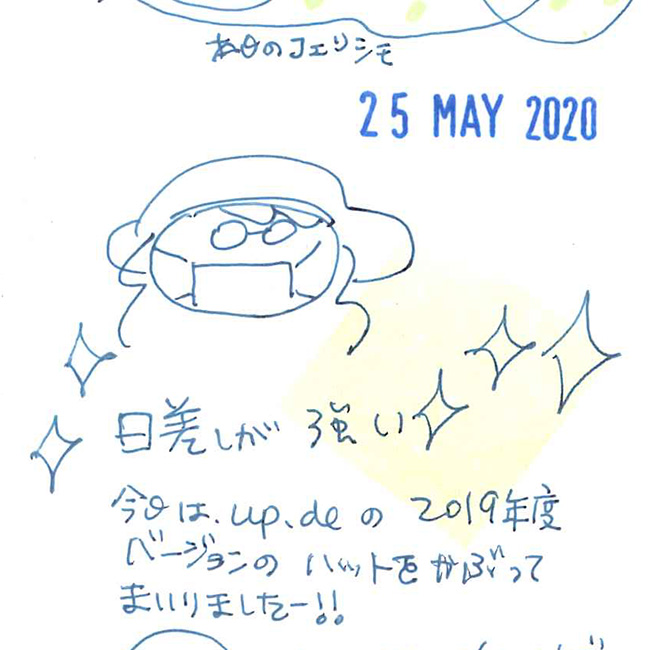 本日のフェリシモ
25 MAY 2020
日差しが強い
今日は、up.deの2019年度
バージョンのハットをかぶって
まいりましたー!!